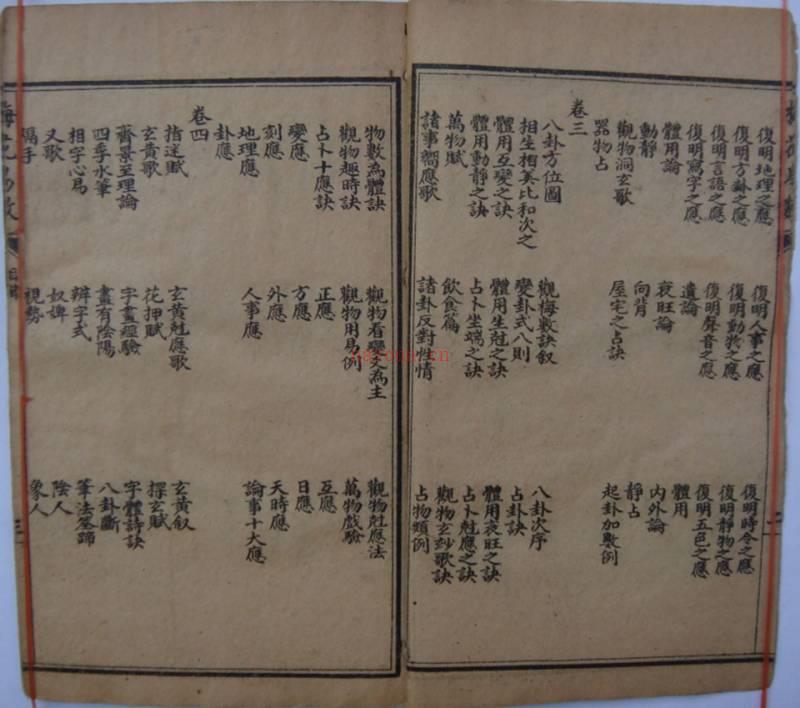 復明地理之應　復明人事之應　復明時令之應
復明方卦之應　復明動物之應　復明靜物之應
復明言語之應　復明聲音之應　復明五色之應
復明寫字之應　遺論　體用
體用論　衰旺論　內外論
動靜　向背　靜占
觀物洞玄歌　屋宅之占訣　起卦加數例
器物占
卷三
八卦方位圖　觀梅數訣叙　八卦次序
相生相尅比和次之　變卦式八則　占卦訣
體用互變之訣　體用生尅之訣　體用衰旺之訣
體用動靜之訣　占卜坐端之訣　占卜尅應之訣
萬物賦　飲食篇　觀物玄妙歌訣
諸事響應歌　諸卦反對性情　占物類例
物數為體訣　觀物看變爻為主　觀物尅應法
觀物趣時訣　觀物用易例　萬物戲驗
占卜十應訣　正應　互應
變應　方應　日應
刻應　外應　天時應
地理應　人事應　論事十大應
卦應
卷四
指迷賦　玄黃尅應歌　玄黃叙
玄黃歌　花押賦　探玄賦
齊景至理論　字畫經驗　字體詩訣
四季水筆　畫有陰陽　八卦斷
相字心易　辨字式　筆法筌蹄
又歌　奴婢　陰人
隔手　視勢　象人
梅花易數
目錄